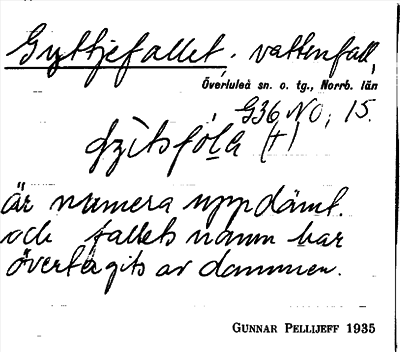 Gyttjefallet, vattenfall,
Överluleå sn. o. tg., Norrb. län
G36 NO; 15.
(+)
är numera uppdämt.
och fallets namn har
övertagits av dammen.
GUNNAR PELLIJEFF 1935